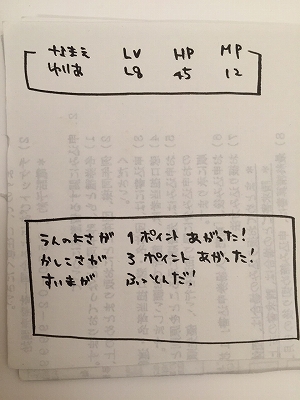 なまえ LV HP MP
ゆりあ L8 45 12
うんのよさが 1 ポイント あがった!
かしこさが 3 ポイント あがった!
すいまが ふっとんだ!